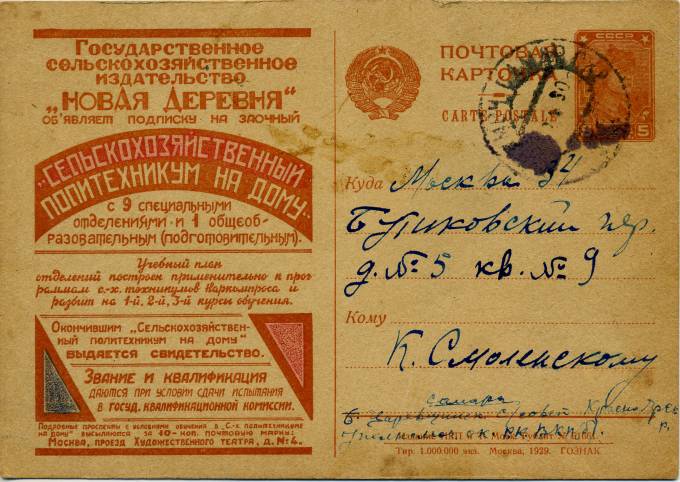 Государственное
сельскохозяйственное
издательство
„НОВАЯ ДЕРЕВНЯ"
об'являет подписку на заочный
„СЕЛЬСКОХОЗЯЙСТВЕННЫЙ
ПОЛИТЕХНИКУМ НА ДОМУ"
с 9 специальными
отделениями и 1 общеоб-
разовательным (подготовительным).
Учебный план
отделений построен применительно к прог-
раммам с.-х. техникумов Наркомпроса и
разбит на 1-й, 2-й, 3-й курсы обучения.
Окончившим „Сельскохозяйствен-
ный политехникум на дому"
выдается свидетельство.
Звание и квалификация
даются при условии сдачи испытания
в госуд. квалификационной комиссии.
Подробные проспекты с условиями обучения в „С.-х. политехникуме
на дому" высылаются за 10-коп. почтовую марку:
Москва, проезд Художественного театра, д. № 4.
СССР
5
ПОЧТОВАЯ
КАРТОЧКА
CARTE POSTALE
Куда Москва 34
пер.
д. № 5 кв. № 9
Кому
К. Смоленскому
Самара
Тир. 1.000.000 экз. Москва, 1929. ГОЗНАК